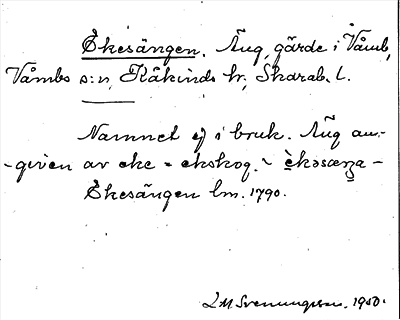 Ekesängen. Äng, gärde i Våmb,
Våmbs s:n, Kåkinds hr, Skarab. l.
Namnet ej i bruk. Äng om-
-given av eke = ekskog. ~ èkəsæŋa -
Ekesängen lm. 1790.
L M Svenungsson. 1950.